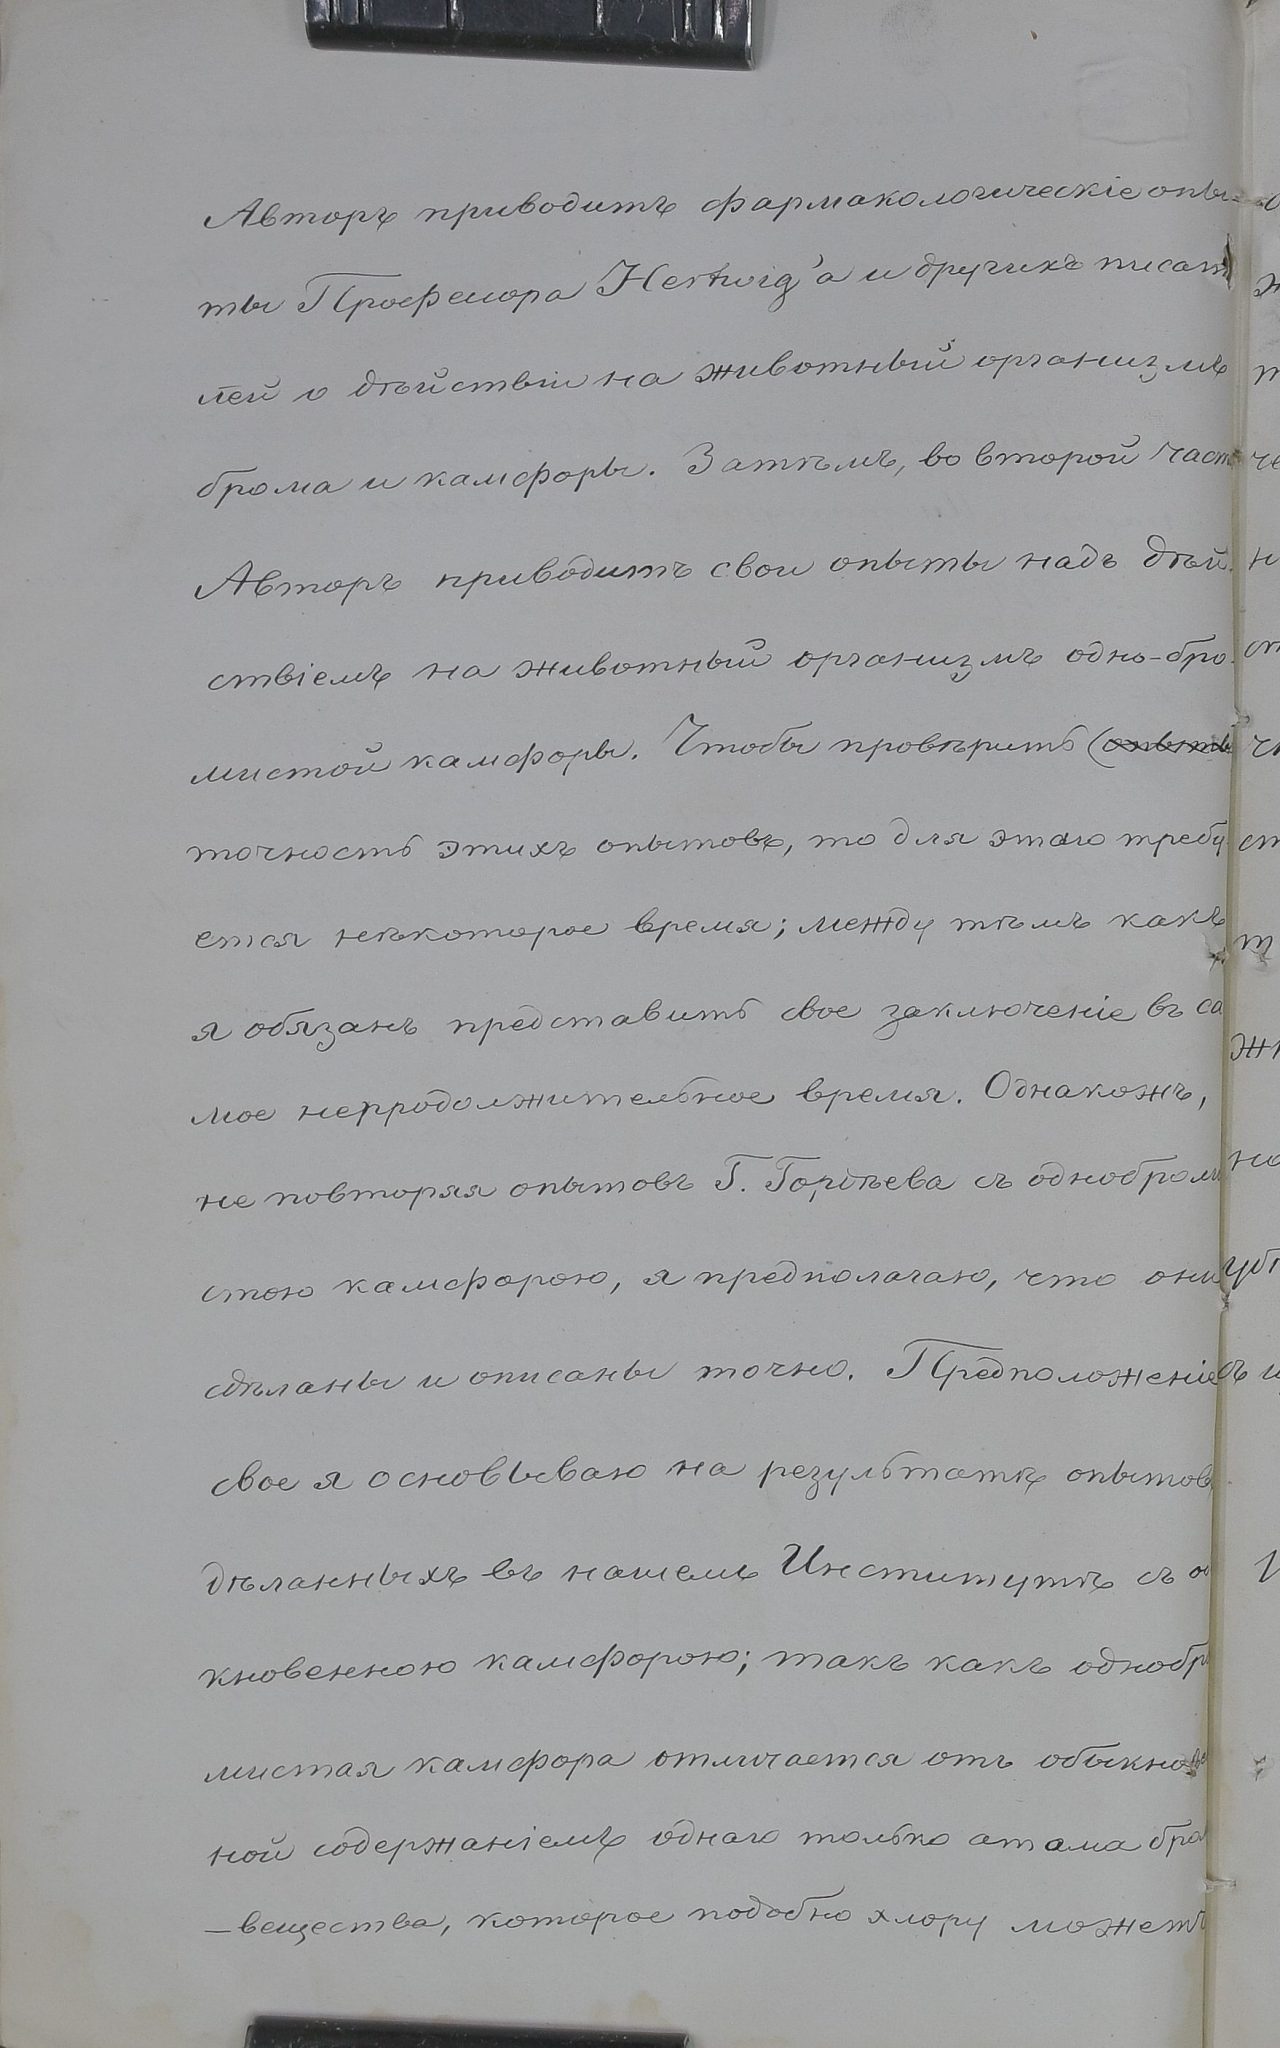 Авторъ приводитъ фармакологическіе опы-
ты Професcора Hertwig'а и другихъ писат
лей о дѣйствіи на животный организмъ
брома и камфоры. Затѣмъ, во второй част
Авторъ приводитъ свои опыты надъ дѣй-
ствіемъ на животный организмъ одно-бро-
мистой камфоры. Чтобы провѣрить (опыты
точность этихъ опытовъ, то для этаго требу
ется нѣкоторое время; между тѣмъ какъ
я обязанъ представить свое заключеніе въ са
мое непродолжительное время. Однакожъ,
не повторяя опытовъ Г. Гордѣева съ одноброми
стою камфорою, я предполагаю, что они
сдѣланы и описаны точно. Предположеніе
свое я основываю на результатѣ опытовъ
дѣланныхъ въ нашемъ Институтѣ съ об
кновенною камфорою; такъ какъ однобро
мистая камфора отличается отъ обыкнове
ной содержаніемъ однаго только атама бром
–вещества, которое подобно хлору можетъ